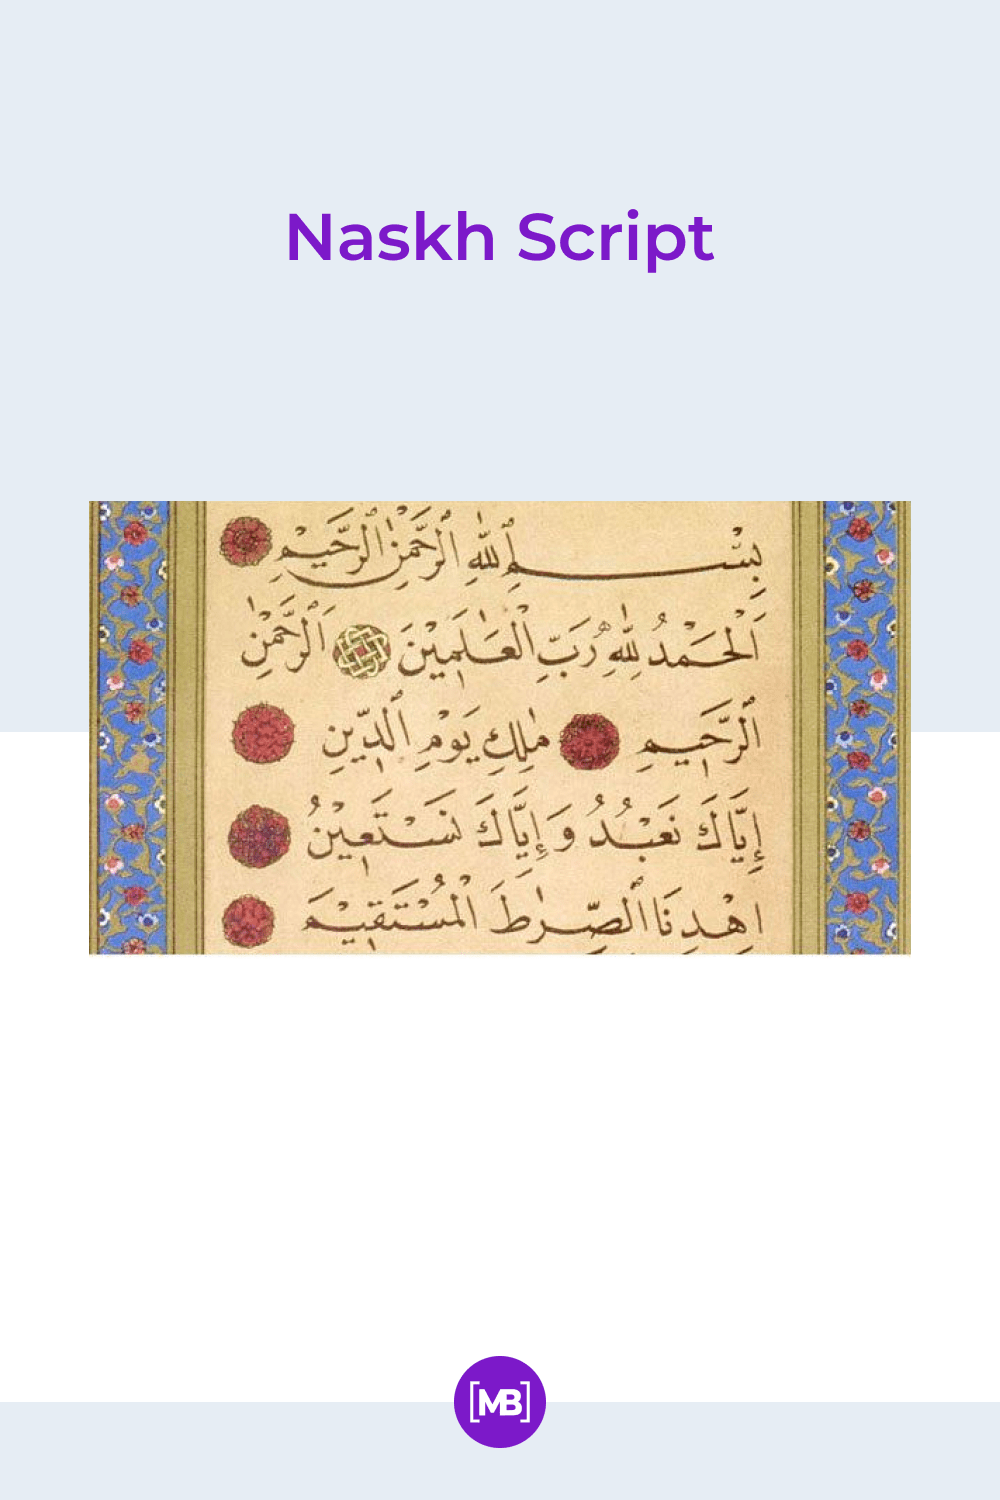 Naskh Script
بِسْمِ ٱللّٰهِ ٱلرَّحْمٰنِ ٱلرَّحِيمِ
اَلْحَمْدُ لِلّٰهِ رَبِّ ٱلْعَالَمِيْنَ اَلرَّحْمٰنِ
ٱلرَّحِيمِ مٰلِكِ يَوْمِ ٱلدِّينِ
إِيَّاكَ نَعْبُدُ وَ إِيَّاكَ نَسْتَعِيْنُ
اِهْدِنَا ٱلصِّرٰطَ ٱلْمُسْتَقِيْمَ
[MB]